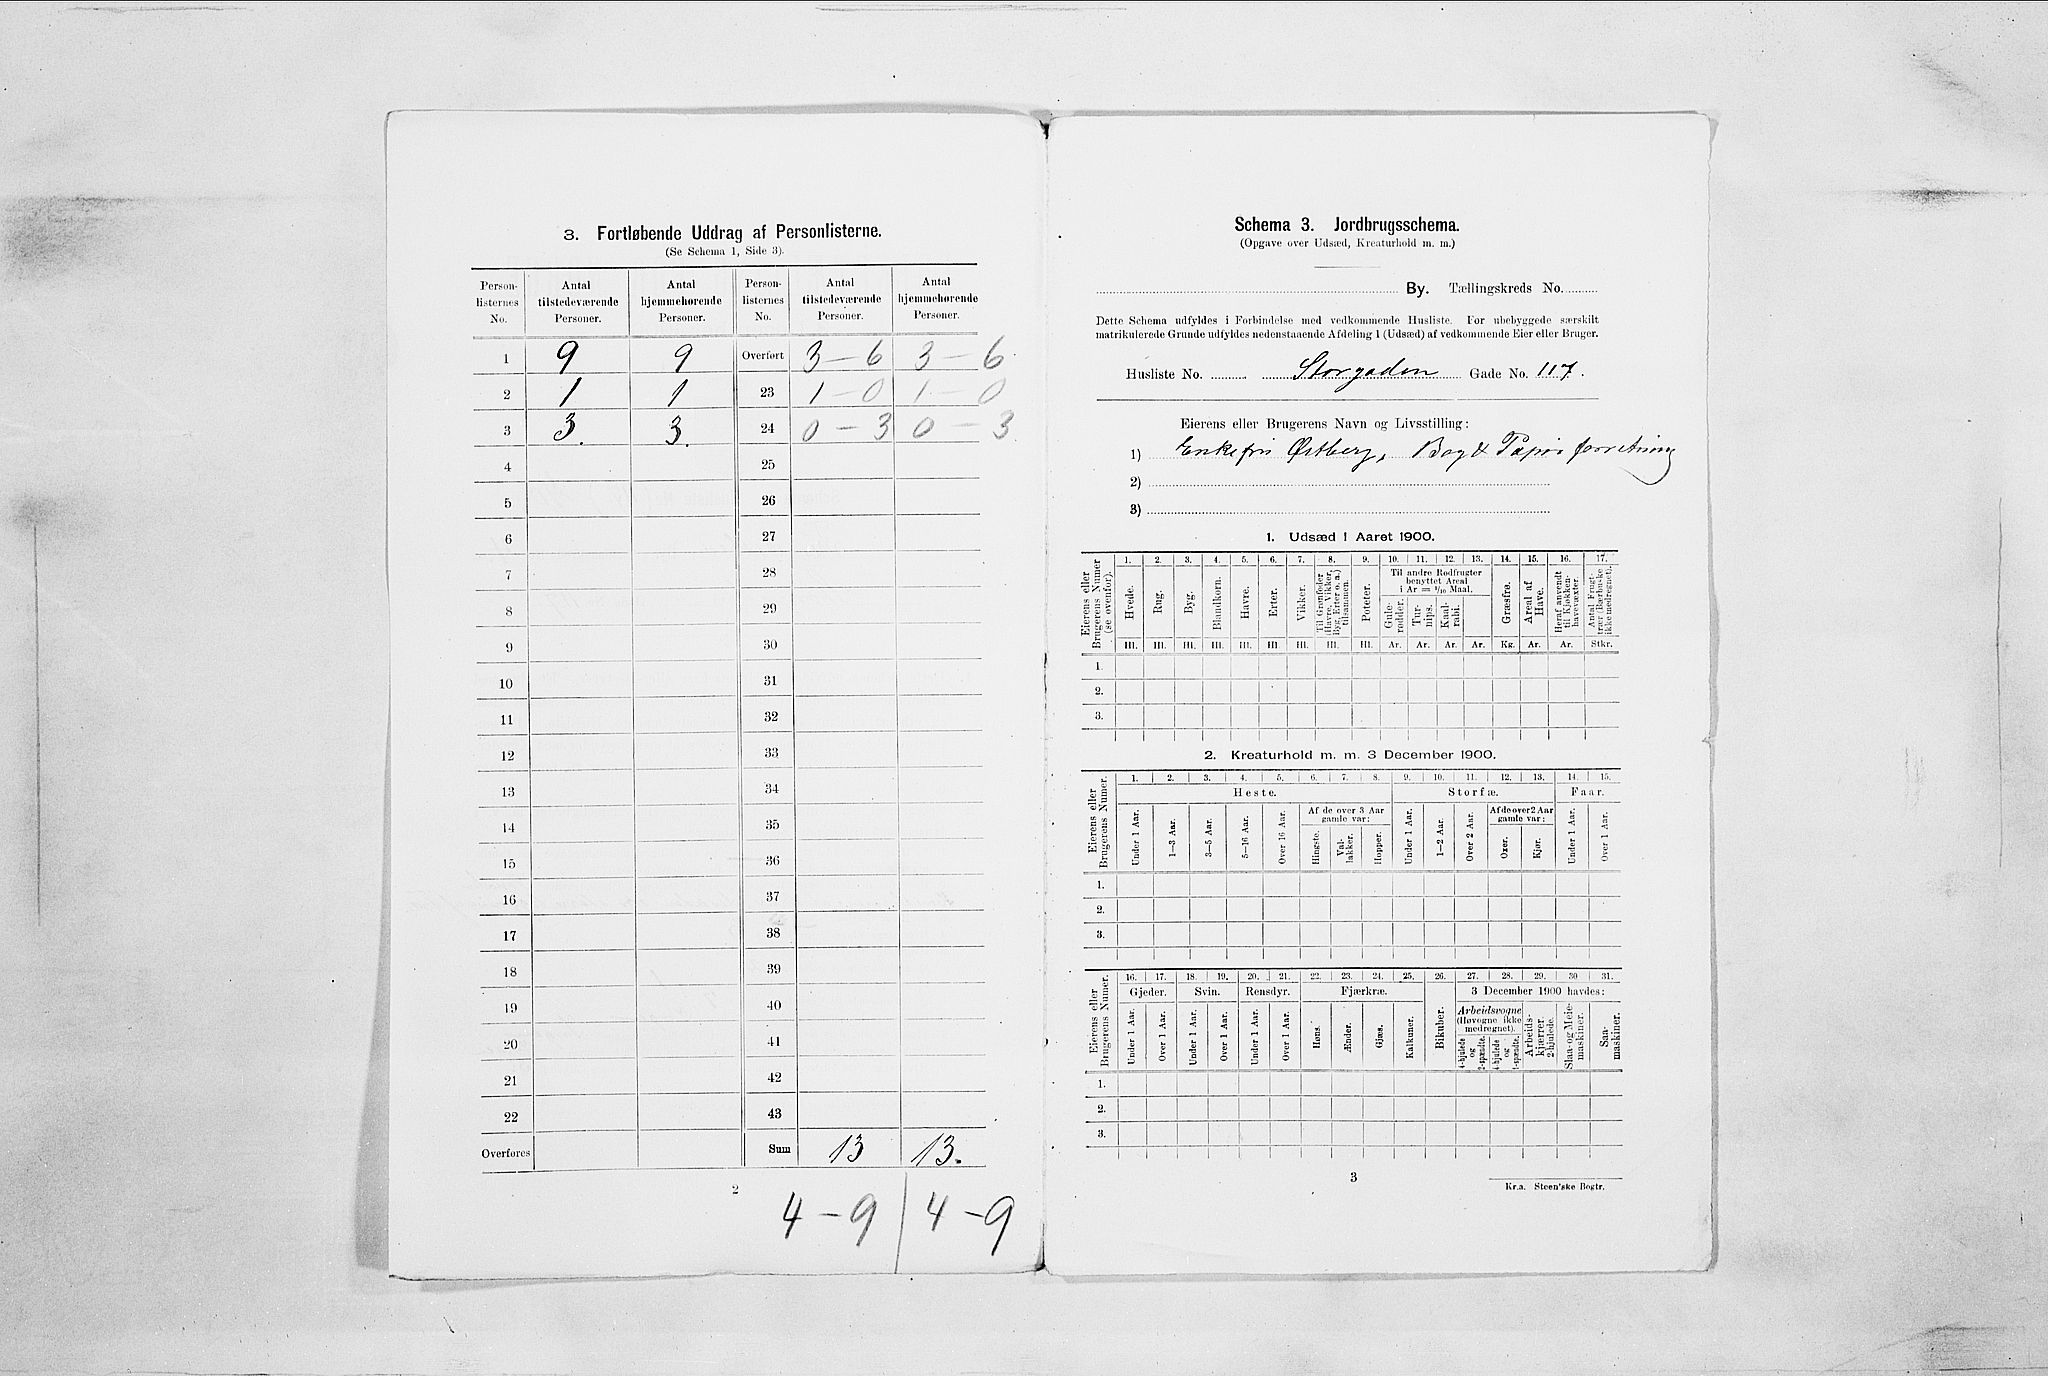 3. Fortløbende Uddrag af Personlisterne.
(Se Schema 1, Side 3).
Person-listernes No. Antal tilstedeværende Personer. Antal hjemmehørende Personer. Person-listernes No. Antal tilstedeværende Personer. Antal hjemmehørende Personer.
1 9 9 Overført 3-6 3-6
2 1 1 23 1-0 1-0
3 3. 3. 24 0-3 0-3
4 25
5 26
6 27
7 28
8 29
9 30
10 31
11 32
12 33
13 34
14 35
15 36
16 37
17 38
18 39
19 40
20 41
21 42
22 43
Overføres Sum 13 13.
2
4-9 4-9
Schema 3. Jordbrugsschema.
(Opgave over Udsæd, Kreaturhold m. m.)
By. Tællingskreds No.
Dette Schema udfyldes i Forbindelse med vedkommende Husliste. For ubebyggede særskilt
matrikulerede Grunde udfyldes nedenstaaende Afdeling 1 (Udsæd) af vedkommende Eier eller Bruger.
Husliste No. Storgaden Gade No. 117.
Eierens eller Brugerens Navn og Livsstilling:
1) Enkefru Østberg, Bog & Papirforretning
2)
3)
1. Udsæd i Aaret 1900.
1. 2. 3. 4. 5. 6. 7. 8. 9. 10. 11. 12. 13. 14. 15. 16. 17.
Eierens eller Brugerens Numer (se ovenfor).
Hvede. Rug. Byg. Blandkorn. Havre. Erter. Vikker. Til Grønfoder (Havre, Vikker, Byg, Erter o. a.) tilsammen. Poteter.
Til andre Rodfrugter benyttet Areal i Ar = 1/10 Maal.
Gule-rødder. Tur-nips. Kaal-rabi.
Græsfrø. Areal af Have. Heraf anvendt til Kjøkken-havevæxter. Antal Frugt-trær (Bærbuske ikke medregnet).
Hl. Hl. Hl. Hl. Hl. Hl. Hl. Hl. Hl. Ar. Ar. Ar. Ar. Kg. Ar. Ar. Stkr.
1.
2.
3.
2. Kreaturhold m. m. 3 December 1900.
1. 2. 3. 4. 5. 6. 7. 8. 9. 10. 11. 12. 13. 14. 15.
Eierens eller Brugerens Numer.
Heste. Storfæ. Faar.
Af de over 3 Aar gamle var: Af de over 2 Aar gamle var:
Under 1 Aar. 1—3 Aar. 3—5 Aar. 5—16 Aar. Over 16 Aar. Hingste. Val-lakker. Hopper. Under 1 Aar. 1—2 Aar. Over 2 Aar. Oxer. Kjør. Under 1 Aar. Over 1 Aar.
1.
2.
3.
16. 17. 18. 19. 20. 21. 22. 23. 24. 25. 26. 27. 28. 29. 30 31.
Eierens eller Brugerens Numer.
Gjeder. Svin. Rensdyr. Fjærkræ. Bikuber. 3 December 1900 havdes:
Arbeidsvogne (Høvogne ikke medregnet).
Under 1 Aar. Over 1 Aar. Under 1 Aar. Over 1 Aar. Under 1 Aar. Over 1 Aar. Høns. Ænder. Gjæs. Kalkuner. 4-hjulede og 2-spændte. 4-hjulede og 1-spændte. Arbeids-kjærrer. 2-hjulede. Slaa- og Meie-maskiner. Saa-maskiner.
1.
2.
3.
3
Kr.a. Steen'ske Bogtr.